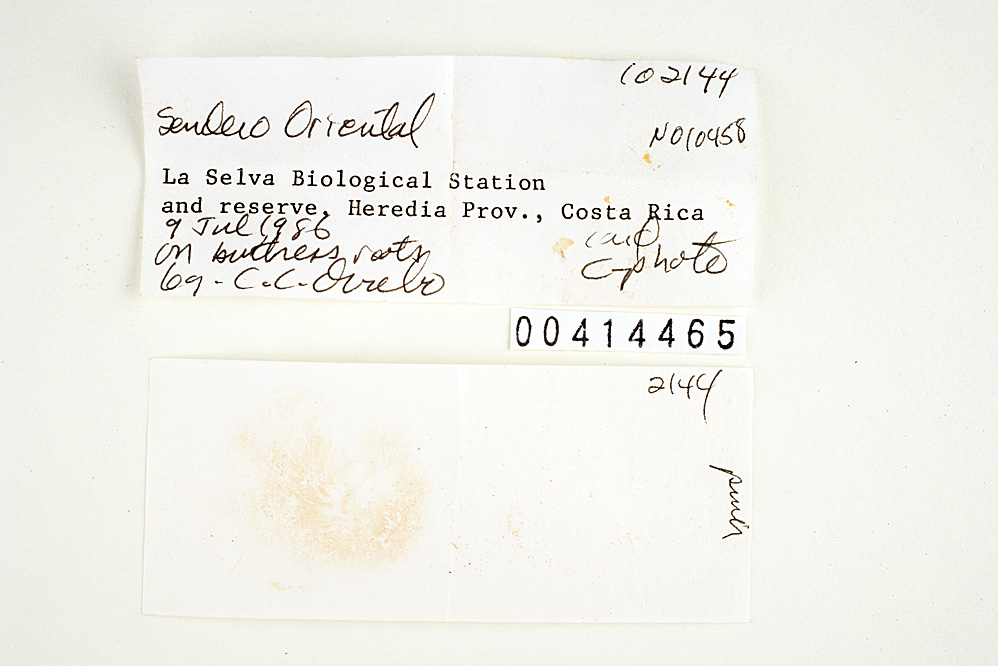 102144
Sendero Oriental
NO10458
La Selva Biological Station
and reserve, Heredia Prov., Costa Rica
9 Jul 1986
on buttress roots
C-photo
69 - C.L. Ovrebo
00414465
2144